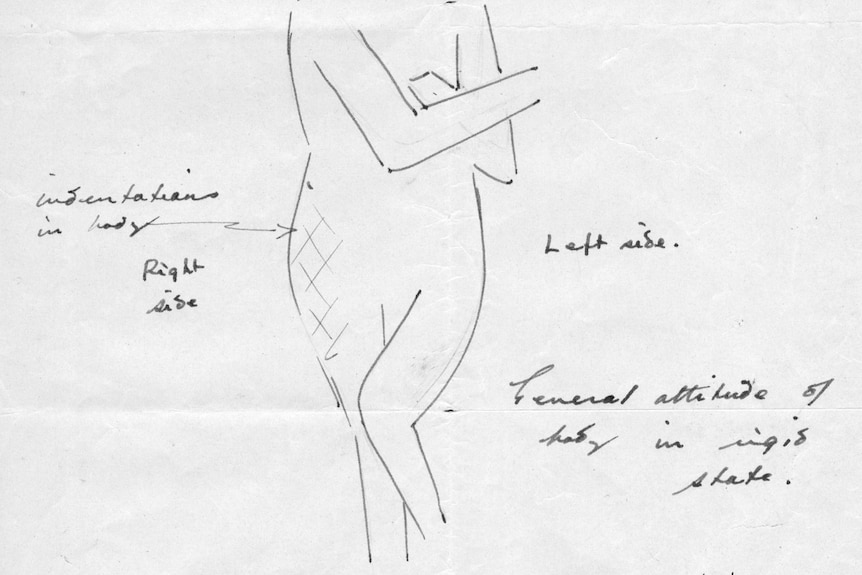 indentations
in body
Right
side
Left side.
General attitude of
body in rigid
state.